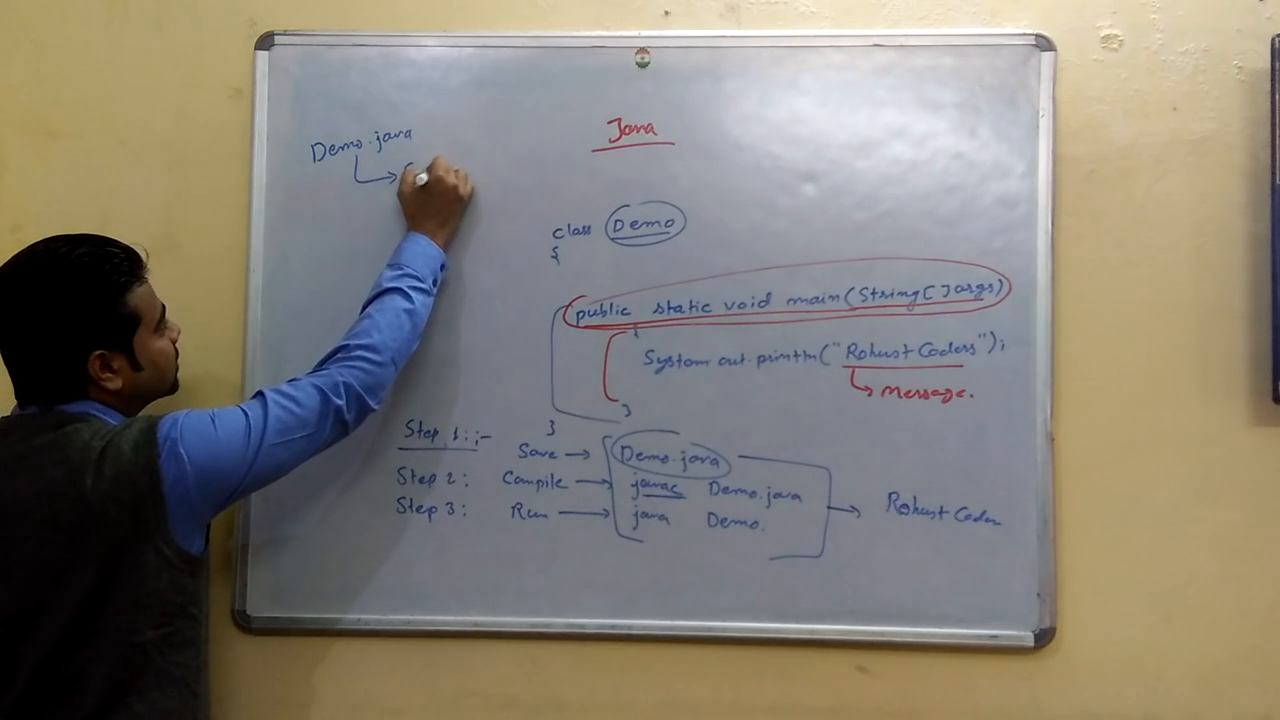 Java
Demo.java
class Demo
{
public static void main(String[] args)
{
System.out.println("Robust Coders");
message.
}
}
Step 1:;-
Save → Demo.java
Step 2: Compile → javac Demo.java
Step 3: Run → java Demo.
→ Robust Coder